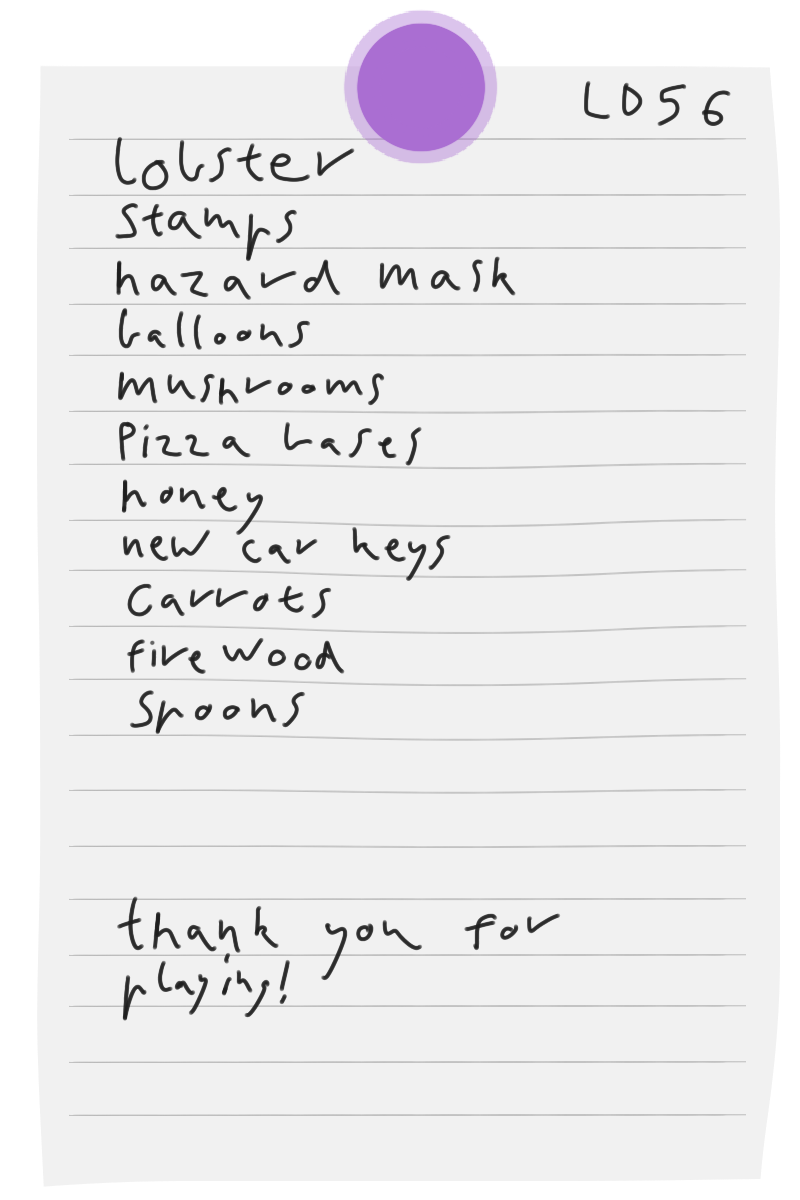 LD56
lobster
stamps
hazard mask
balloons
mushrooms
Pizza bases
honey
new car keys
Carrots
fire wood
Spoons
thank you for
playing!